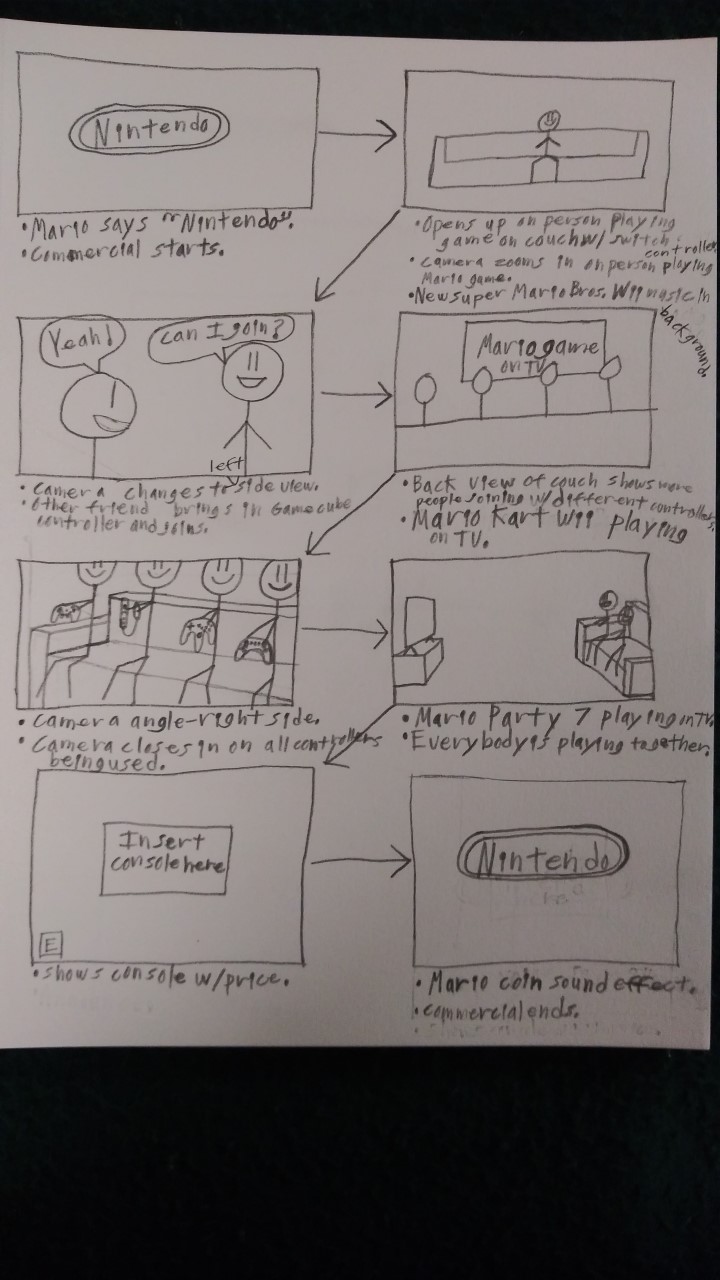 Nintendo
• Mario says "Nintendo".
• Commercial starts.
• Opens up on person playing
game on couch w/ switch controller
• Camera zooms in on person playing
Mario game.
• New super Mario Bros. Wii music in
background.
Yeah!
can I join?
• Camera changes to left side view.
• Other friend brings in Gamecube
controller and joins.
Mario game
on TV
• Back view of couch shows more
people joining w/ different controllers.
• Mario Kart Wii playing
on TV.
• Camera angle-right side.
• Camera closes in on all controllers
being used.
• Mario Party 7 playing on TV.
• Everybody is playing together.
Insert
console here
E
• shows console w/ price.
Nintendo
• Mario coin sound effect.
• commercial ends.